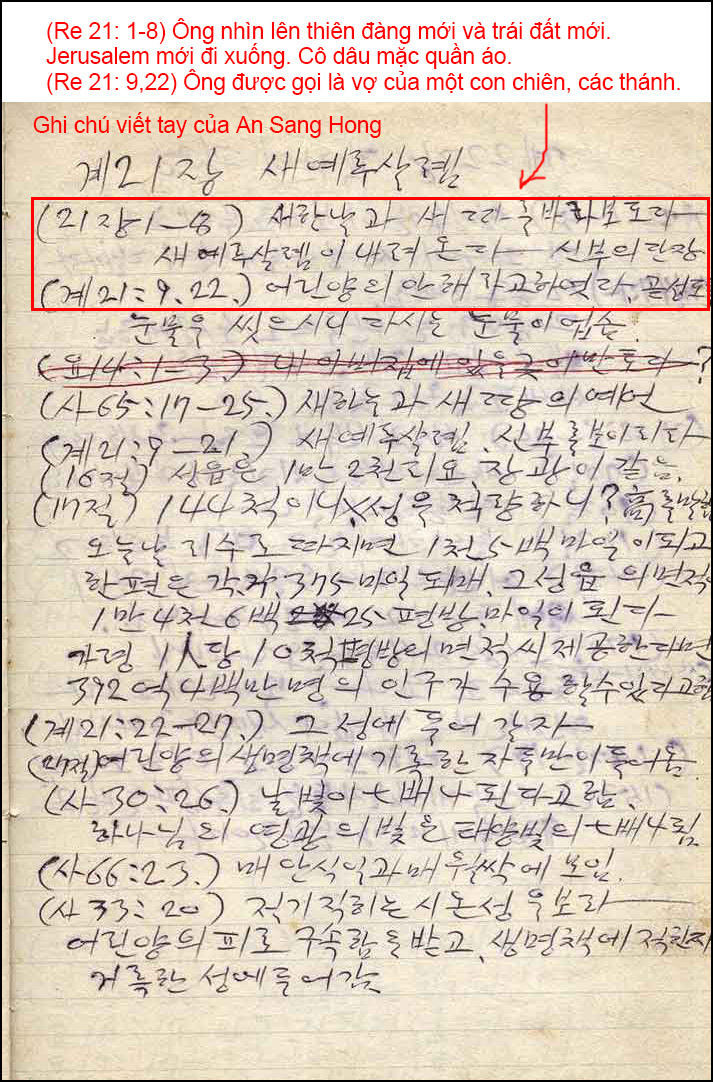 (Re 21: 1-8) Ông nhìn lên thiên đàng mới và trái đất mới.
Jerusalem mới đi xuống. Cô dâu mặc quần áo.
(Re 21: 9,22) Ông được gọi là vợ của một con chiên, các thánh.
Ghi chú viết tay của An Sang Hong
계21장 새예루살렘
(21장1-8) 새한날과 새따를바라보로라
새예루살렘이내려온다 신부의단장
(계21:9.22.) 어린양의안해라고하엿다.
눈물을 씻으시니 다시는 눈물이업슴.
(요14:1-3.) 내아버집에있을곳이만토다?
(사65:17-25.) 새하늘과 새땅의예언
(계21:9-21) 새예루살렘, 신부를보이리라
(16절) 성읍은 1만2천리요, 장광이 같음.
(17절) 144척이니 성을 척량하니?
오늘날 리수로따지면 1천5백마일이되고
한편은 각각, 375마일 되매, 그성읍의면적
1만4천6백 25 평방,마일이된다
가령 1人당 10척평방의 면적씩제공한다면
392억4백만명의 인구가 수용할수있다고함
(계21:22-27.) 그성에들어갈자
(27절)어린양의생명책에기록한자들만이들어옴
(사30:26.) 날빛이七배나된다고함.
하나님의 영광의빛은태양빛의七배나됨
(사66:23.) 매안식일과매월싹에보임.
(사33:20) 절기직히는시온성을보라
어린양의피로 구속함을받고, 생명책에적한자
거룩한성에들어감